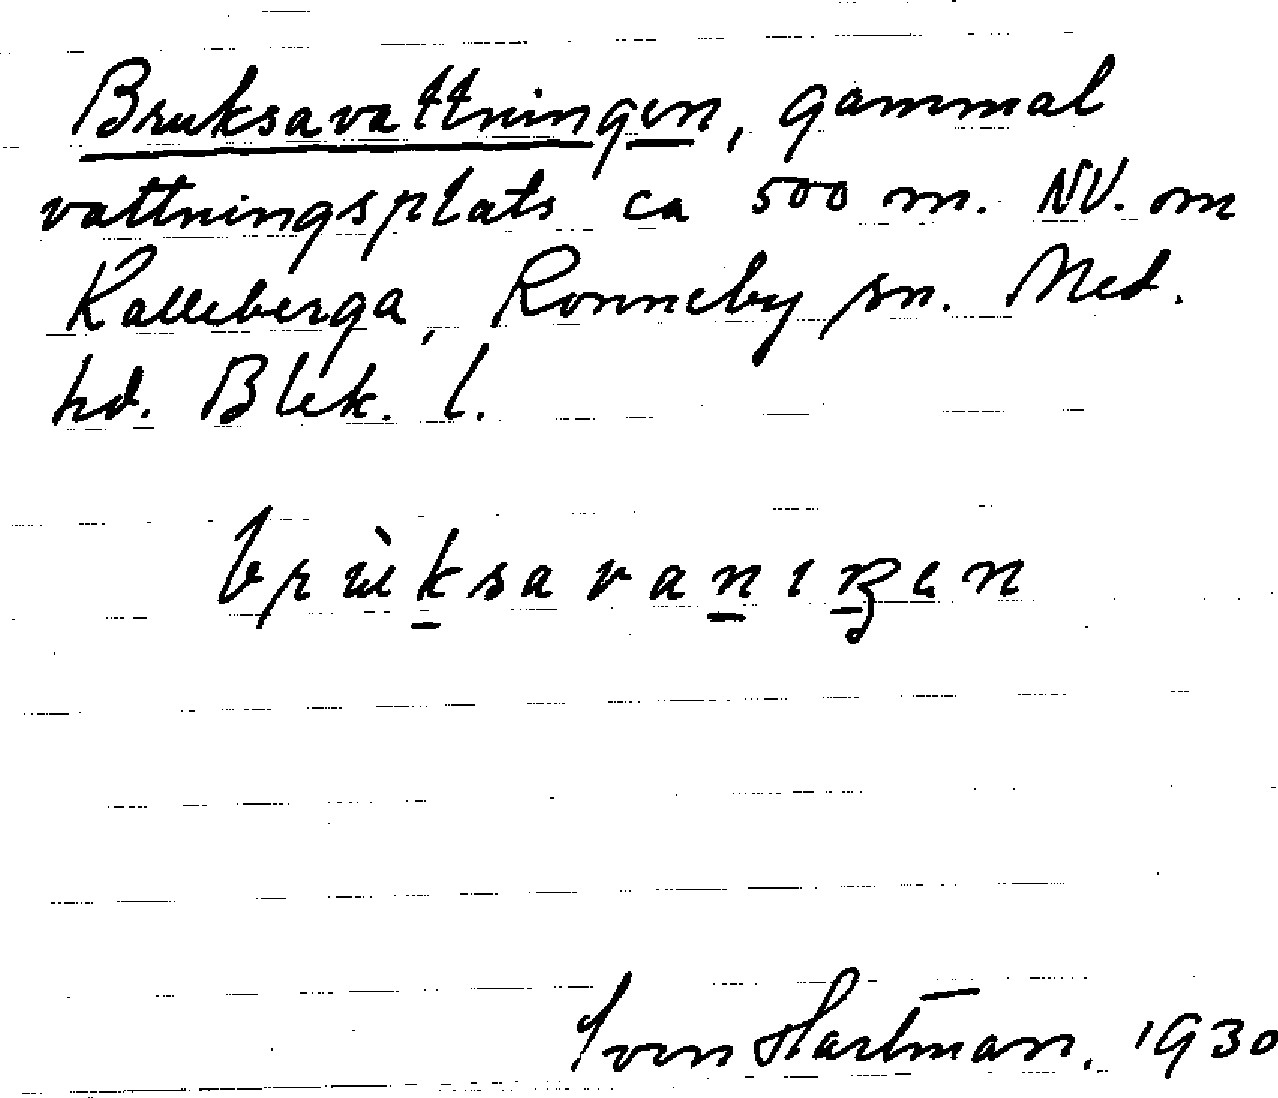 Bruksavattningen, gammal
vattningsplats ca 500 m. NV. om
Kalleberga, Ronneby sn. Med.
hd. Blek. l.
Sven Hartman. 1930